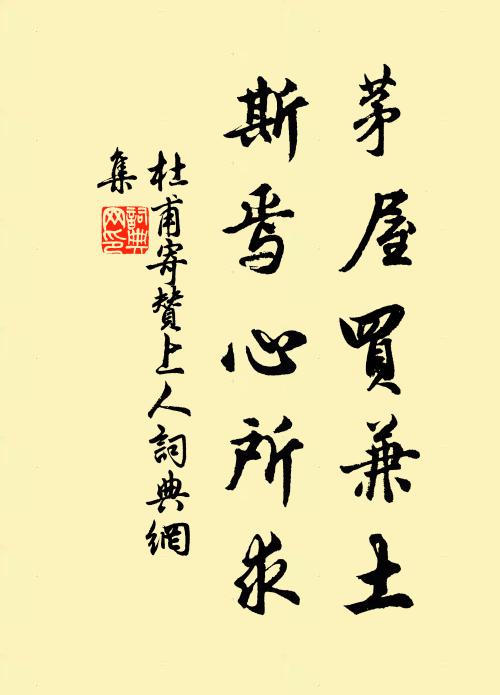 茅屋買兼土
斯焉心所求
杜甫寄贊上人詞典網
集
詞典網印